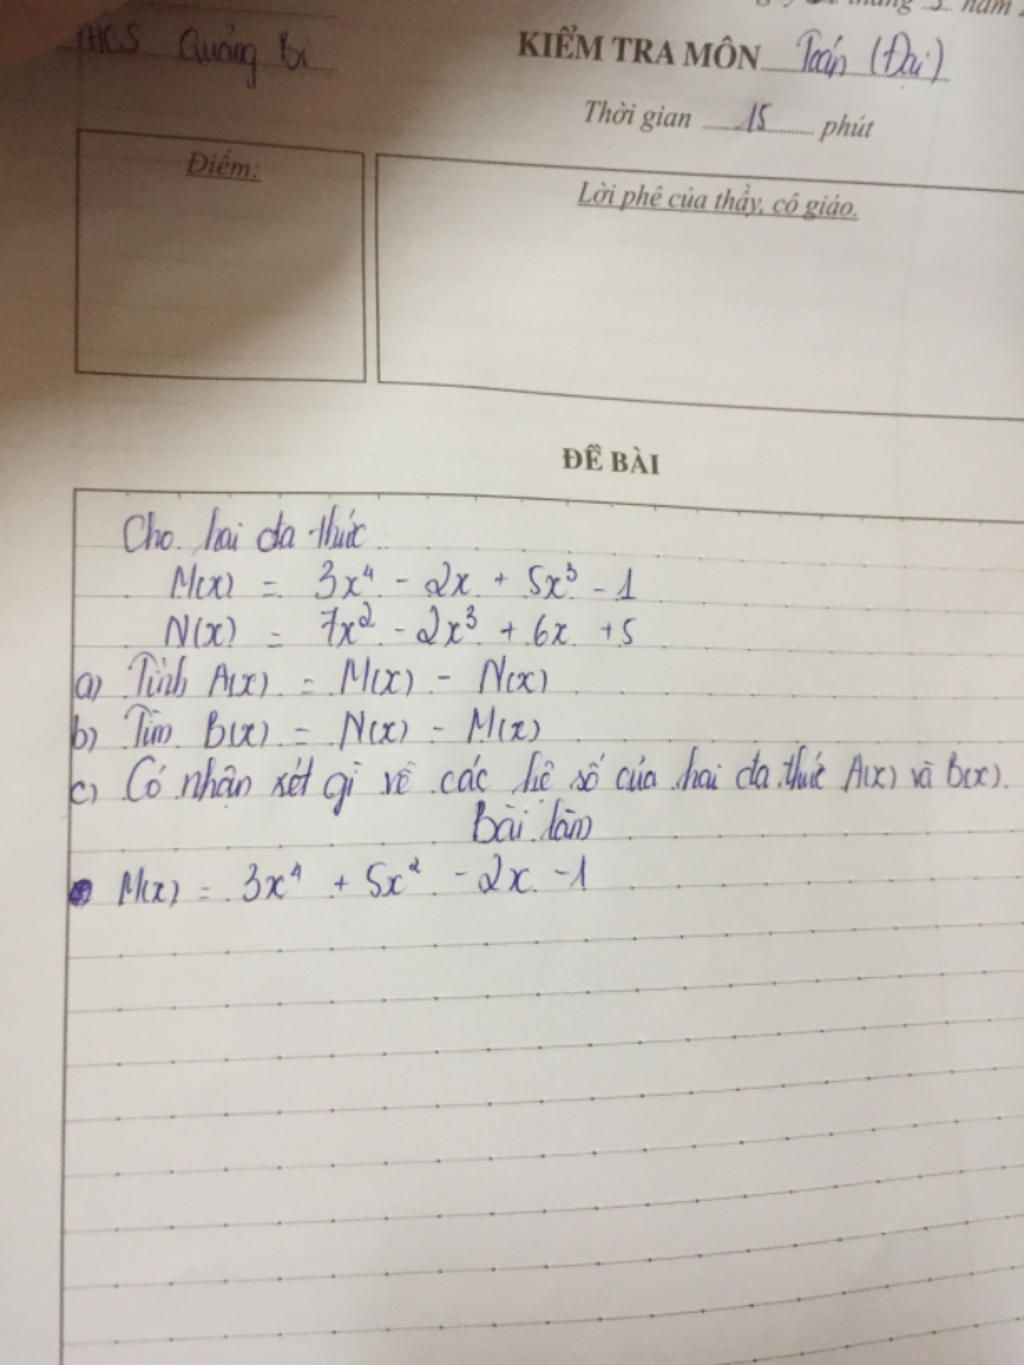 THCS Quảng Bị
tháng 3 năm
KIỂM TRA MÔN Toán (Đại)
Thời gian 15 phút
Điểm:
Lời phê của thầy, cô giáo.
ĐỀ BÀI
Cho hai đa thức
M(x) = 3x⁴ - 2x + 5x³ - 1
N(x) = 7x² - 2x³ + 6x + 5
a) Tính A(x) = M(x) - N(x)
b) Tìm B(x) = N(x) - M(x)
c) Có nhận xét gì về các hệ số của hai đa thức A(x) và B(x).
Bài làm
M(x) = 3x⁴ + 5x² - 2x - 1